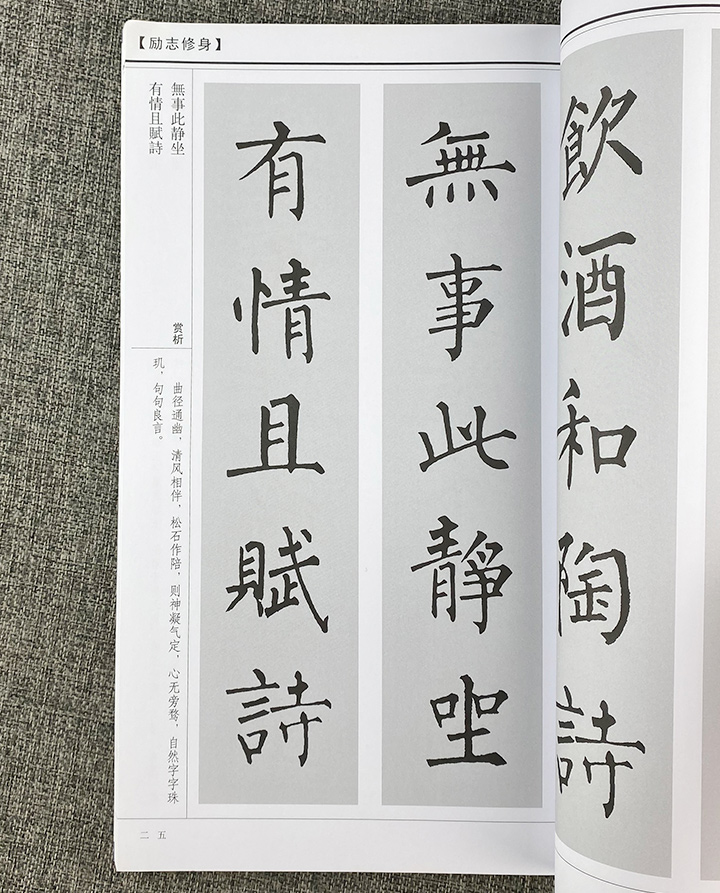 飲酒和陶詩
【励志修身】
無事此靜坐
有情且賦詩
無事此静坐
有情且賦詩
赏析
曲径通幽，清风相伴，松石作陪，则神凝气定，心无旁骛，自然字字珠
玑，句句良言。
二五